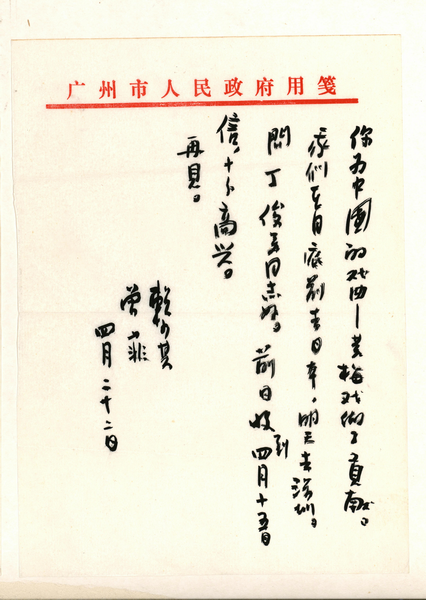 广州市人民政府用笺
你为中國的戏曲—黄梅戏做了貢献。
我们在月底前去日本，明天去深圳。
問丁俊美同志好。前日收到四月十五日
信，十分高兴。
再見。
賴少其
曾菲
四月二十二日